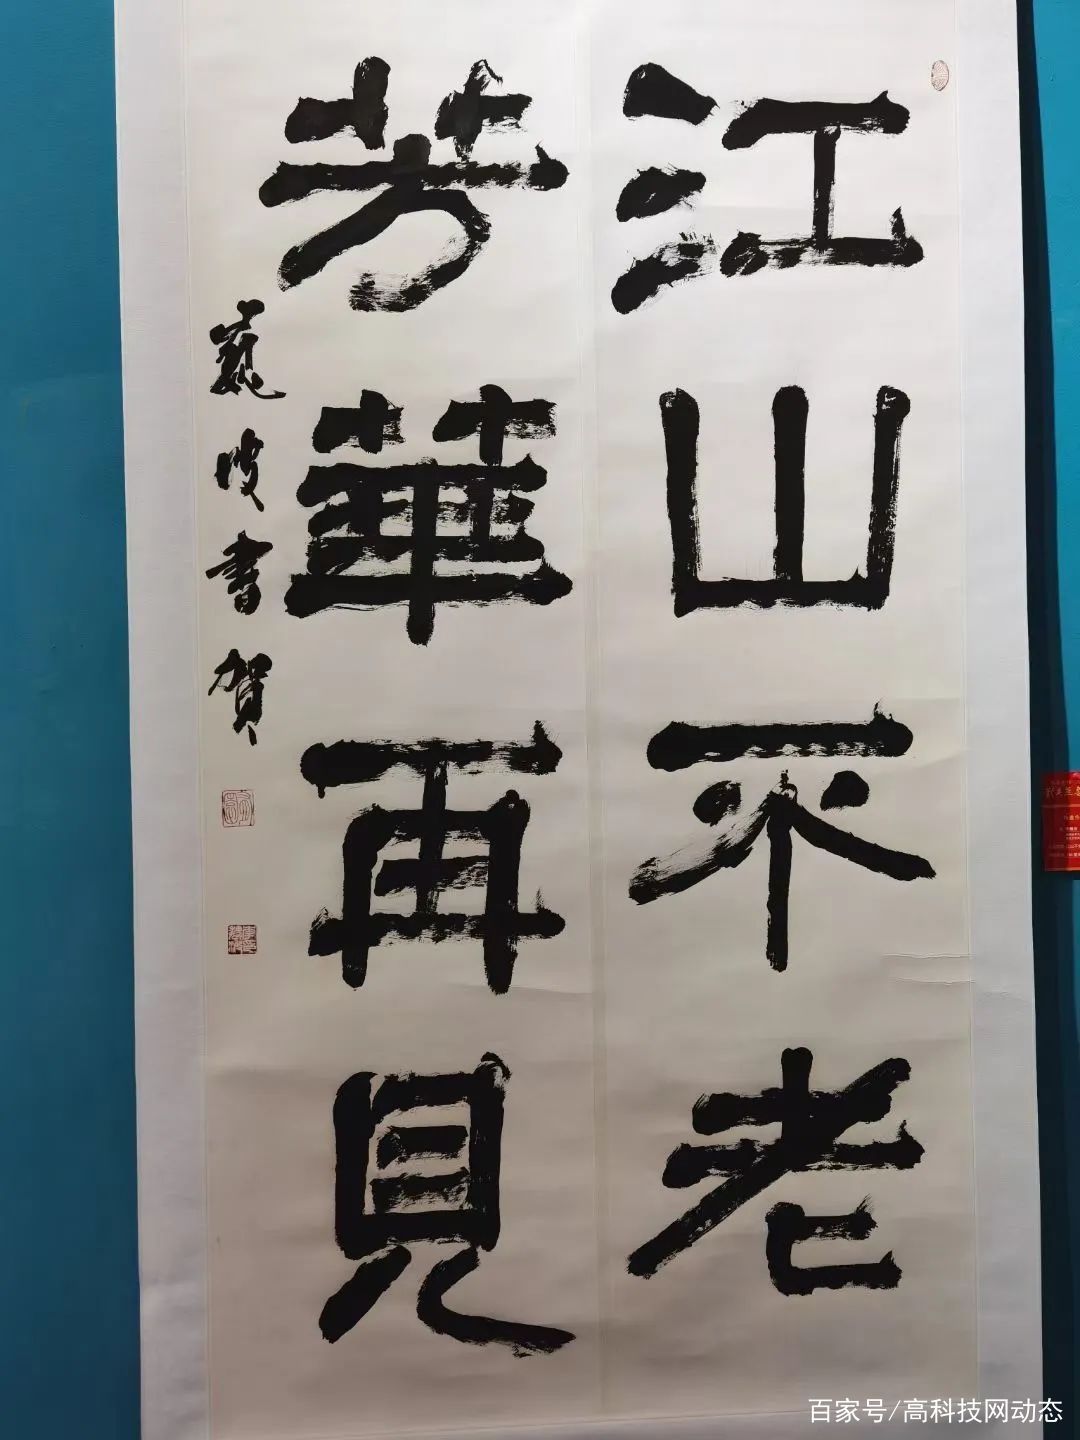 江山不老
芳華再見
書賀
百家号/高科技网动态